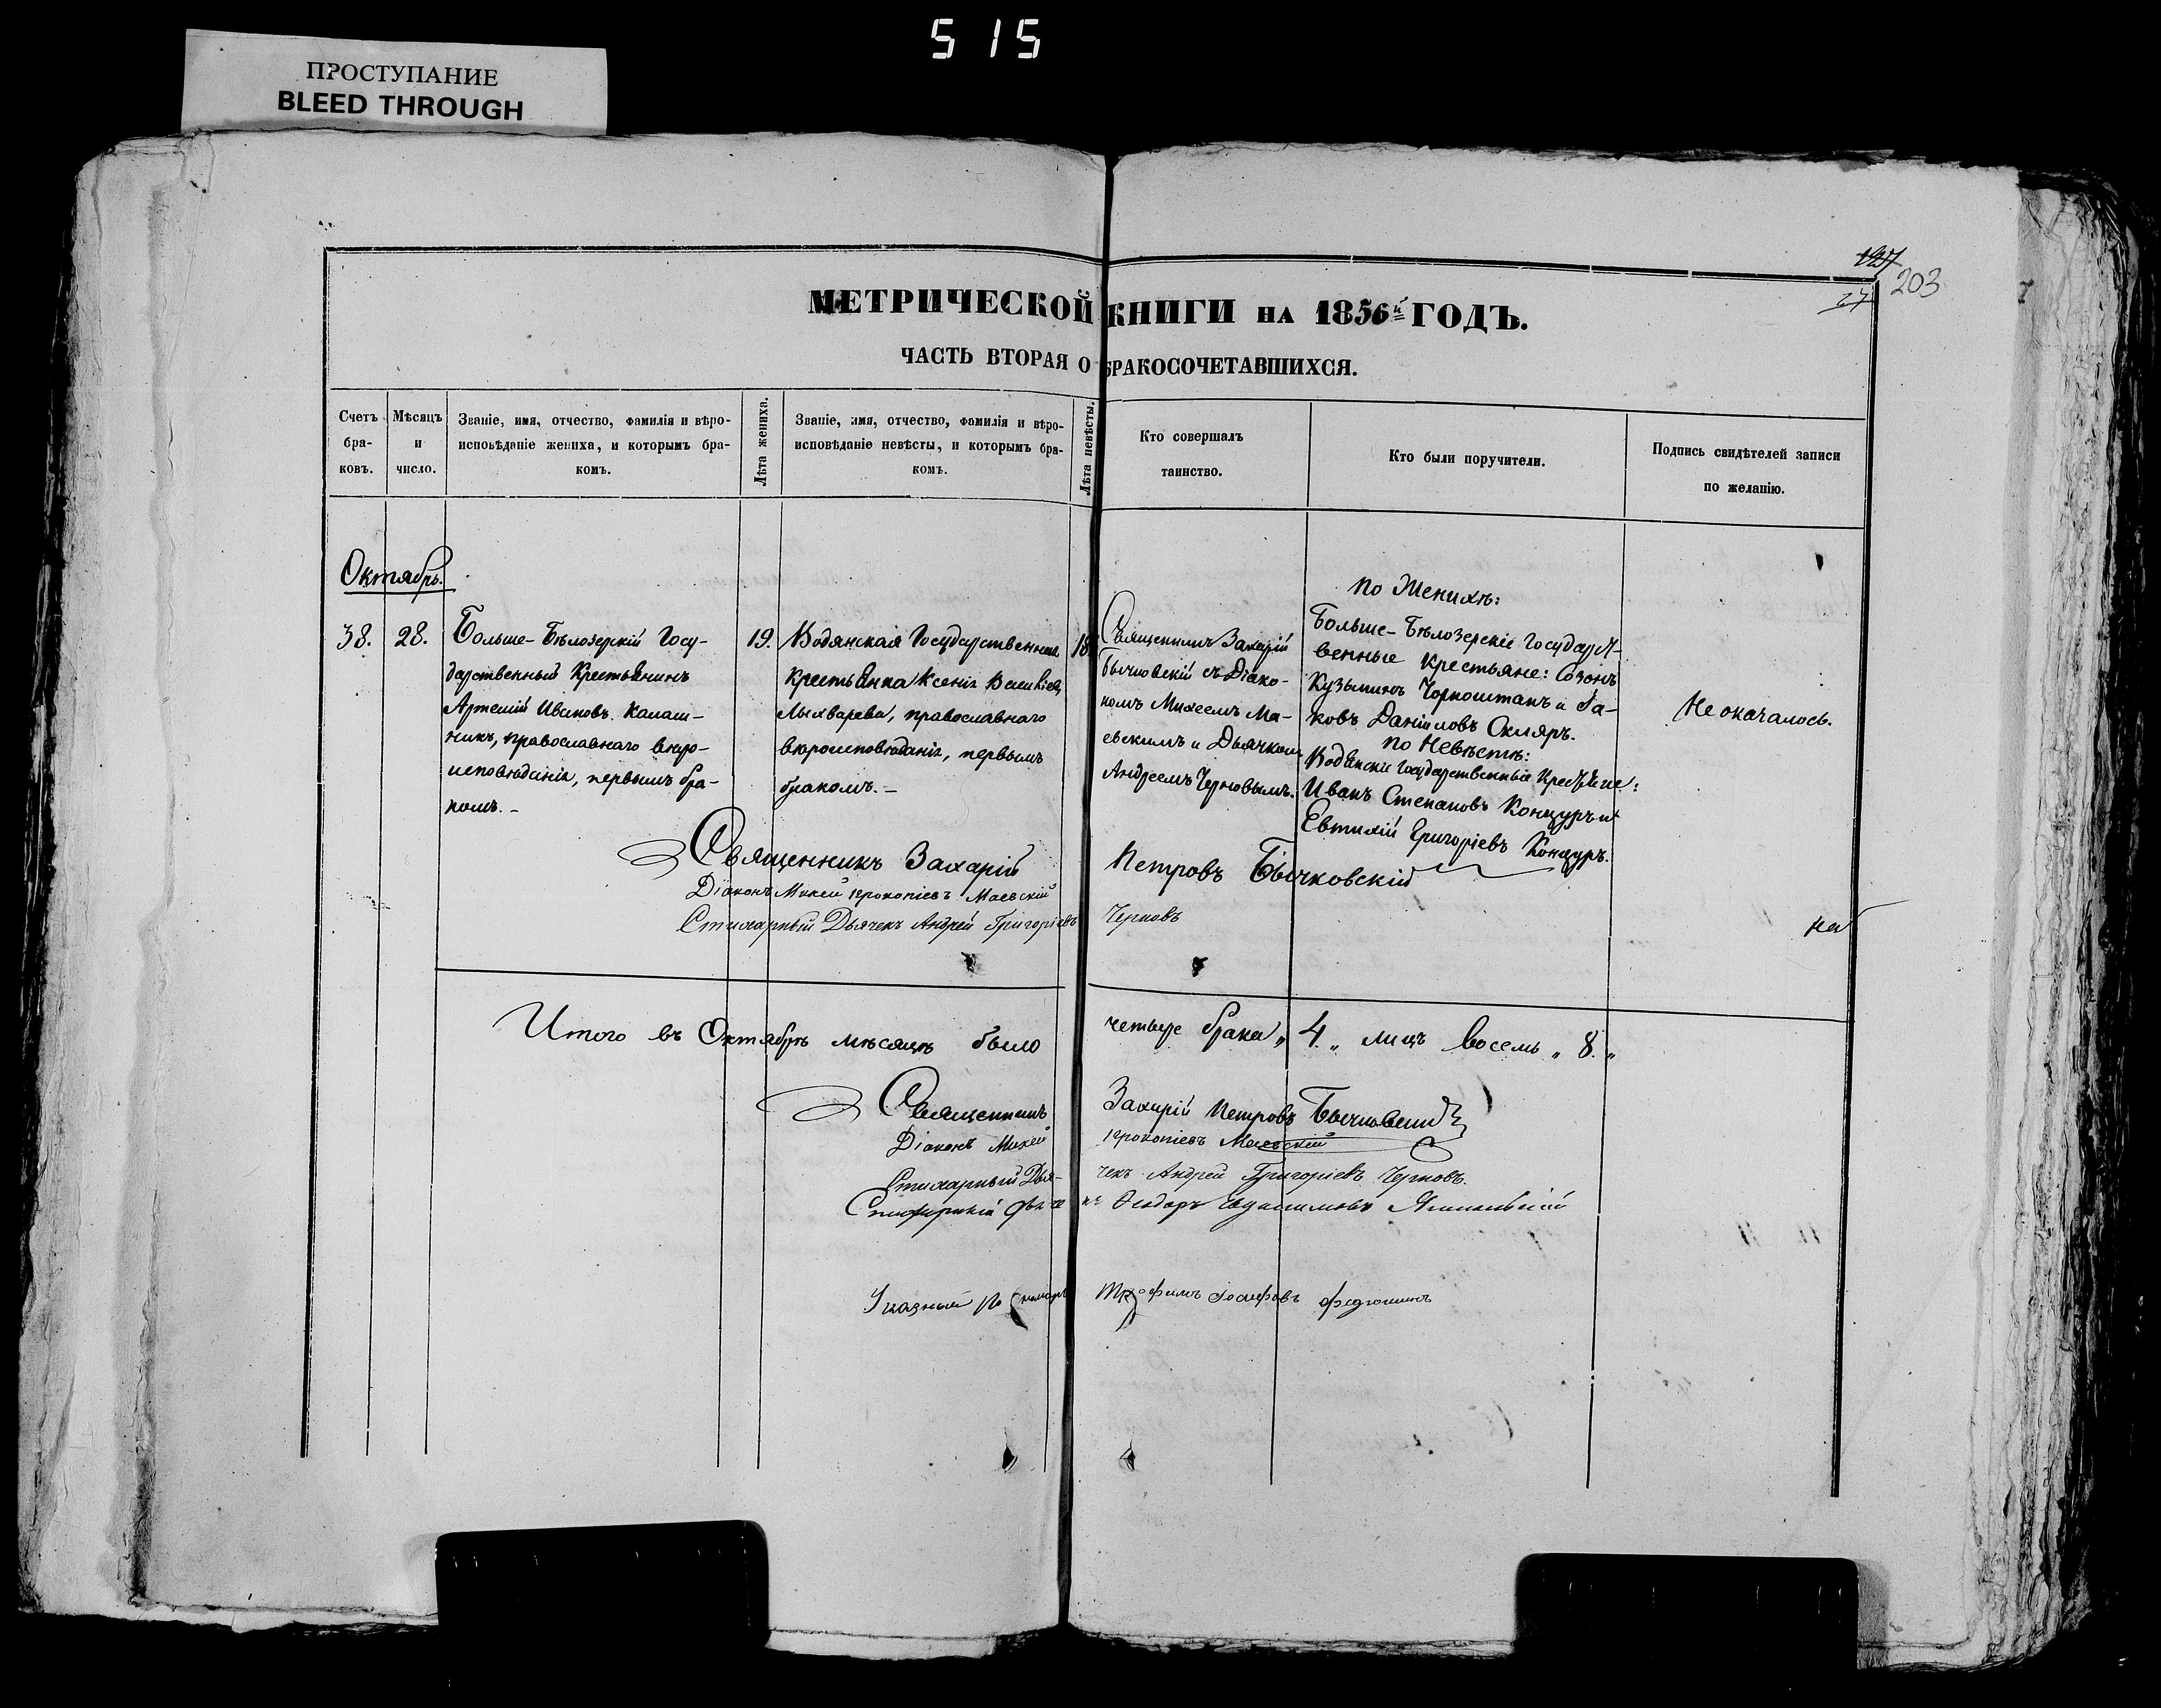 515
ПРОСТУПАНИЕ
BLEED THROUGH
203
27
МЕТРИЧЕСКОЙ КНИГИ НА 1856й ГОДЪ.
ЧАСТЬ ВТОРАЯ О БРАКОСОЧЕТАВШИХСЯ.
Счетъ бра-
ковъ.
Мѣсяцъ
и
число.
Званіе, имя, отчество, фамилія и вѣро-
исповѣданіе жениха, и которымъ бра-
комъ.
Лѣта жениха.
Званіе, имя, отчество, фамилія и вѣро-
исповѣданіе невѣсты, и которымъ бра-
комъ.
Лѣта невѣсты.
Кто совершалъ
таинство.
Кто были поручители.
Подпись свидѣтелей записи
по желанію.
Октябрь.
38.
28.
Больше-Бѣлозерскій Госу-
дарственный Крестьянинъ
Артемій Ивановъ Калаш-
никъ, православнаго вѣро-
исповѣданія, первымъ бра-
комъ.-
19.
Водянская Государственная
крестьянка Ксенія
Лыхварева, православнаго
вѣроисповѣданія, первымъ
бракомъ.-
18
Священникъ Захарій
Бычковскій съ Діако-
номъ Михеемъ Ма-
евскимъ и Дьячкомъ
Андреемъ Черновымъ.
По Женихѣ:
Больше-Бѣлозерскіе Государст-
венные крестьяне: Созонъ
Кузьминъ Чорноштанъ и Іа-
ковъ Даніиловъ Скляръ.
По Невѣстѣ:
Водянскіе Государственные Крестьяне:
Иванъ Степановъ Концуръ и
Евтихій Григоріевъ Концуръ.
Не оказалось.
Священникъ Захарій Петровъ Бычковскій
Діаконъ Михей Прокопіевъ Маевскій
Стихарный Дьячекъ Андрей Григоріевъ Черновъ
Итого въ Октябрѣ мѣсяцѣ было четыре брака „4.„ лицъ восемь „8.„
Священникъ Захарій Петровъ Бычковскій
Діаконъ Михей Прокопіевъ Маевскій
Стихарный Дья-чекъ Андрей Григоріевъ Черновъ.
Стихарный Ѳеодоръ
Указный Пономарь Трофимъ Іосифовъ